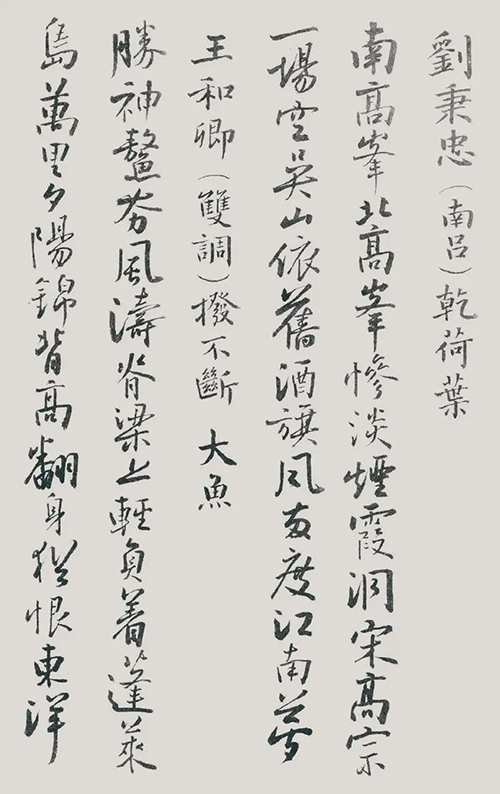 劉秉忠（南呂）乾荷葉
南高峯北高峯慘淡煙霞洞宋高宗
一場空吳山依舊酒旗風兩度江南夢
王和卿（雙調）撥不斷　大魚
勝神鼇夯風濤脊梁上輕負着蓬萊
島萬里夕陽錦背高翻身猶恨東洋